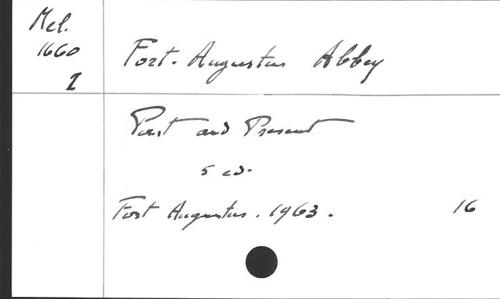 Mel.
1660
I
Fort-Augustus Abbey
Past and Present
5 ed.
Fort Augustus. 1963.
16